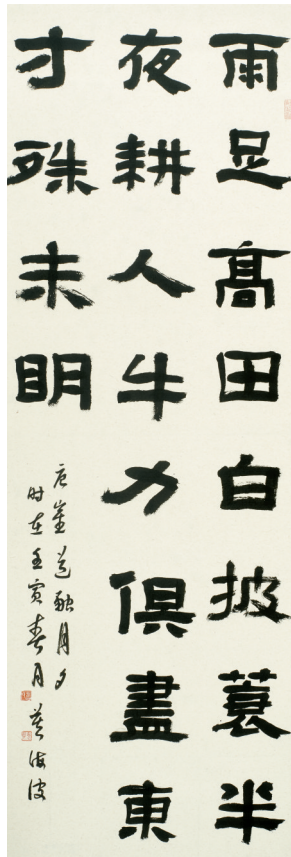 雨足髙田白披蓑半
夜耕人牛力俱盡東
方殊未明
唐崔道融月夕
时在壬寅春月 海波